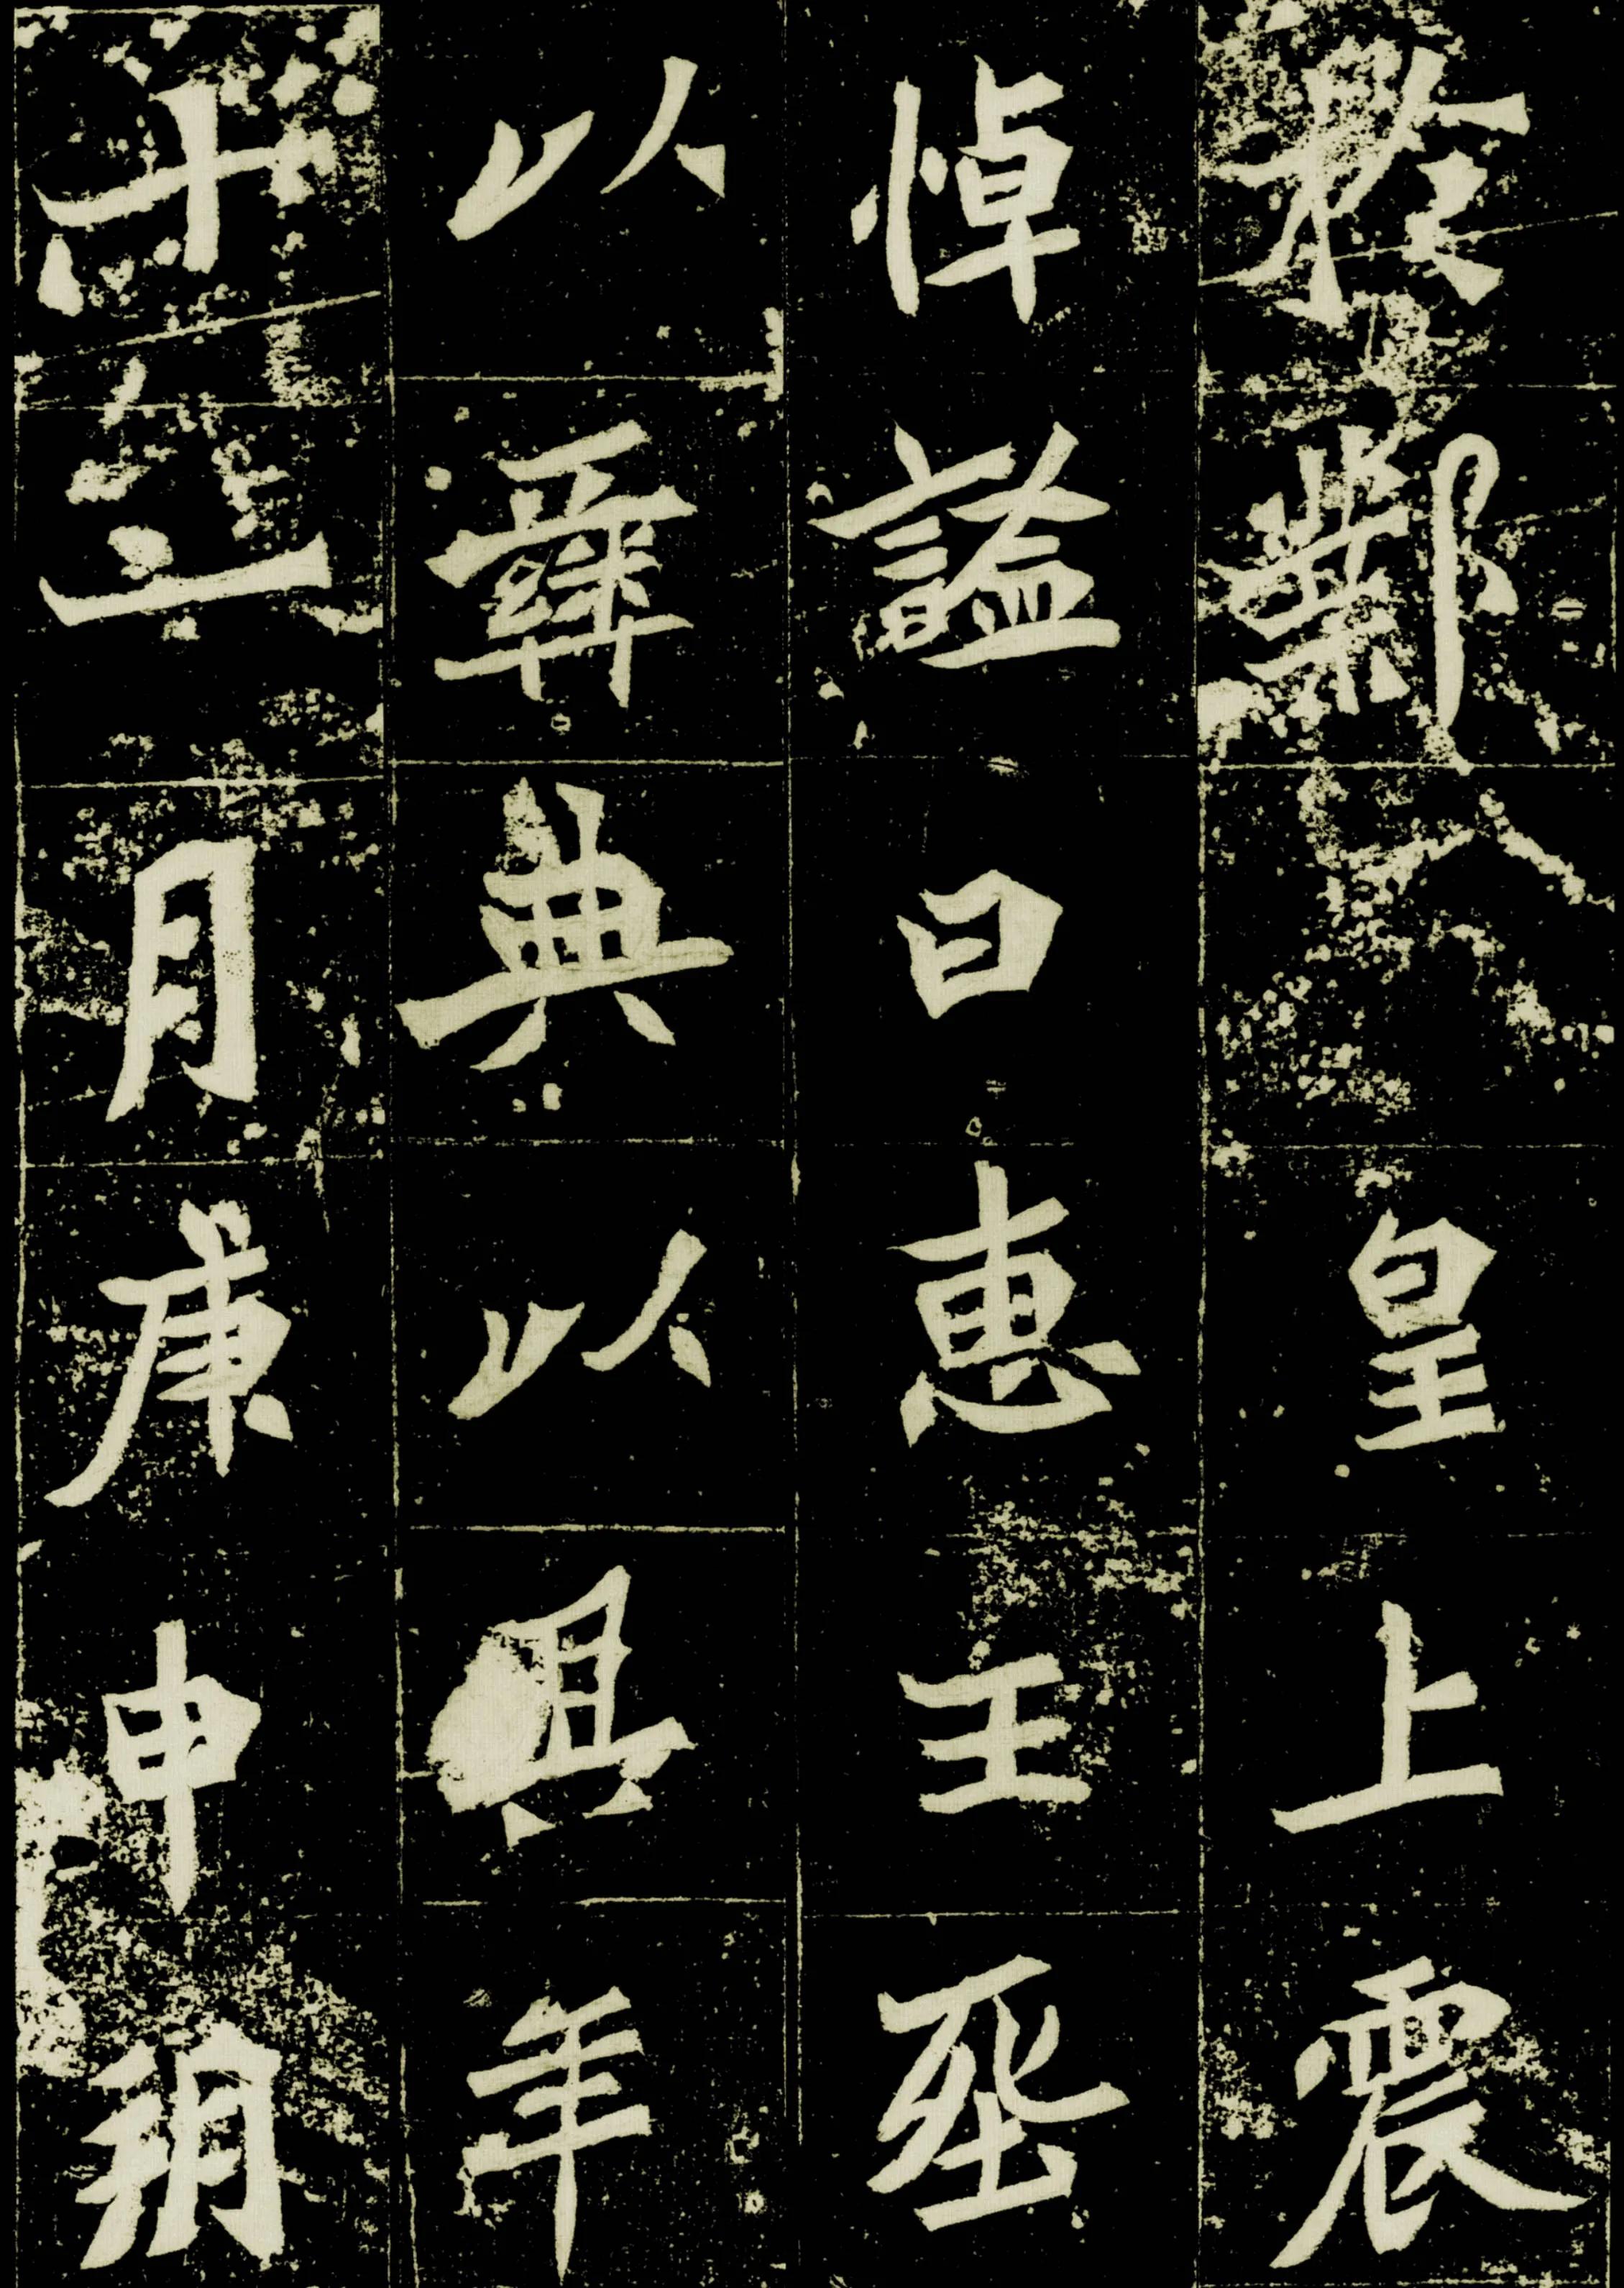 於鄴皇上震
悼謚曰惠王葬
以彝典以其年
十一月庚申朔